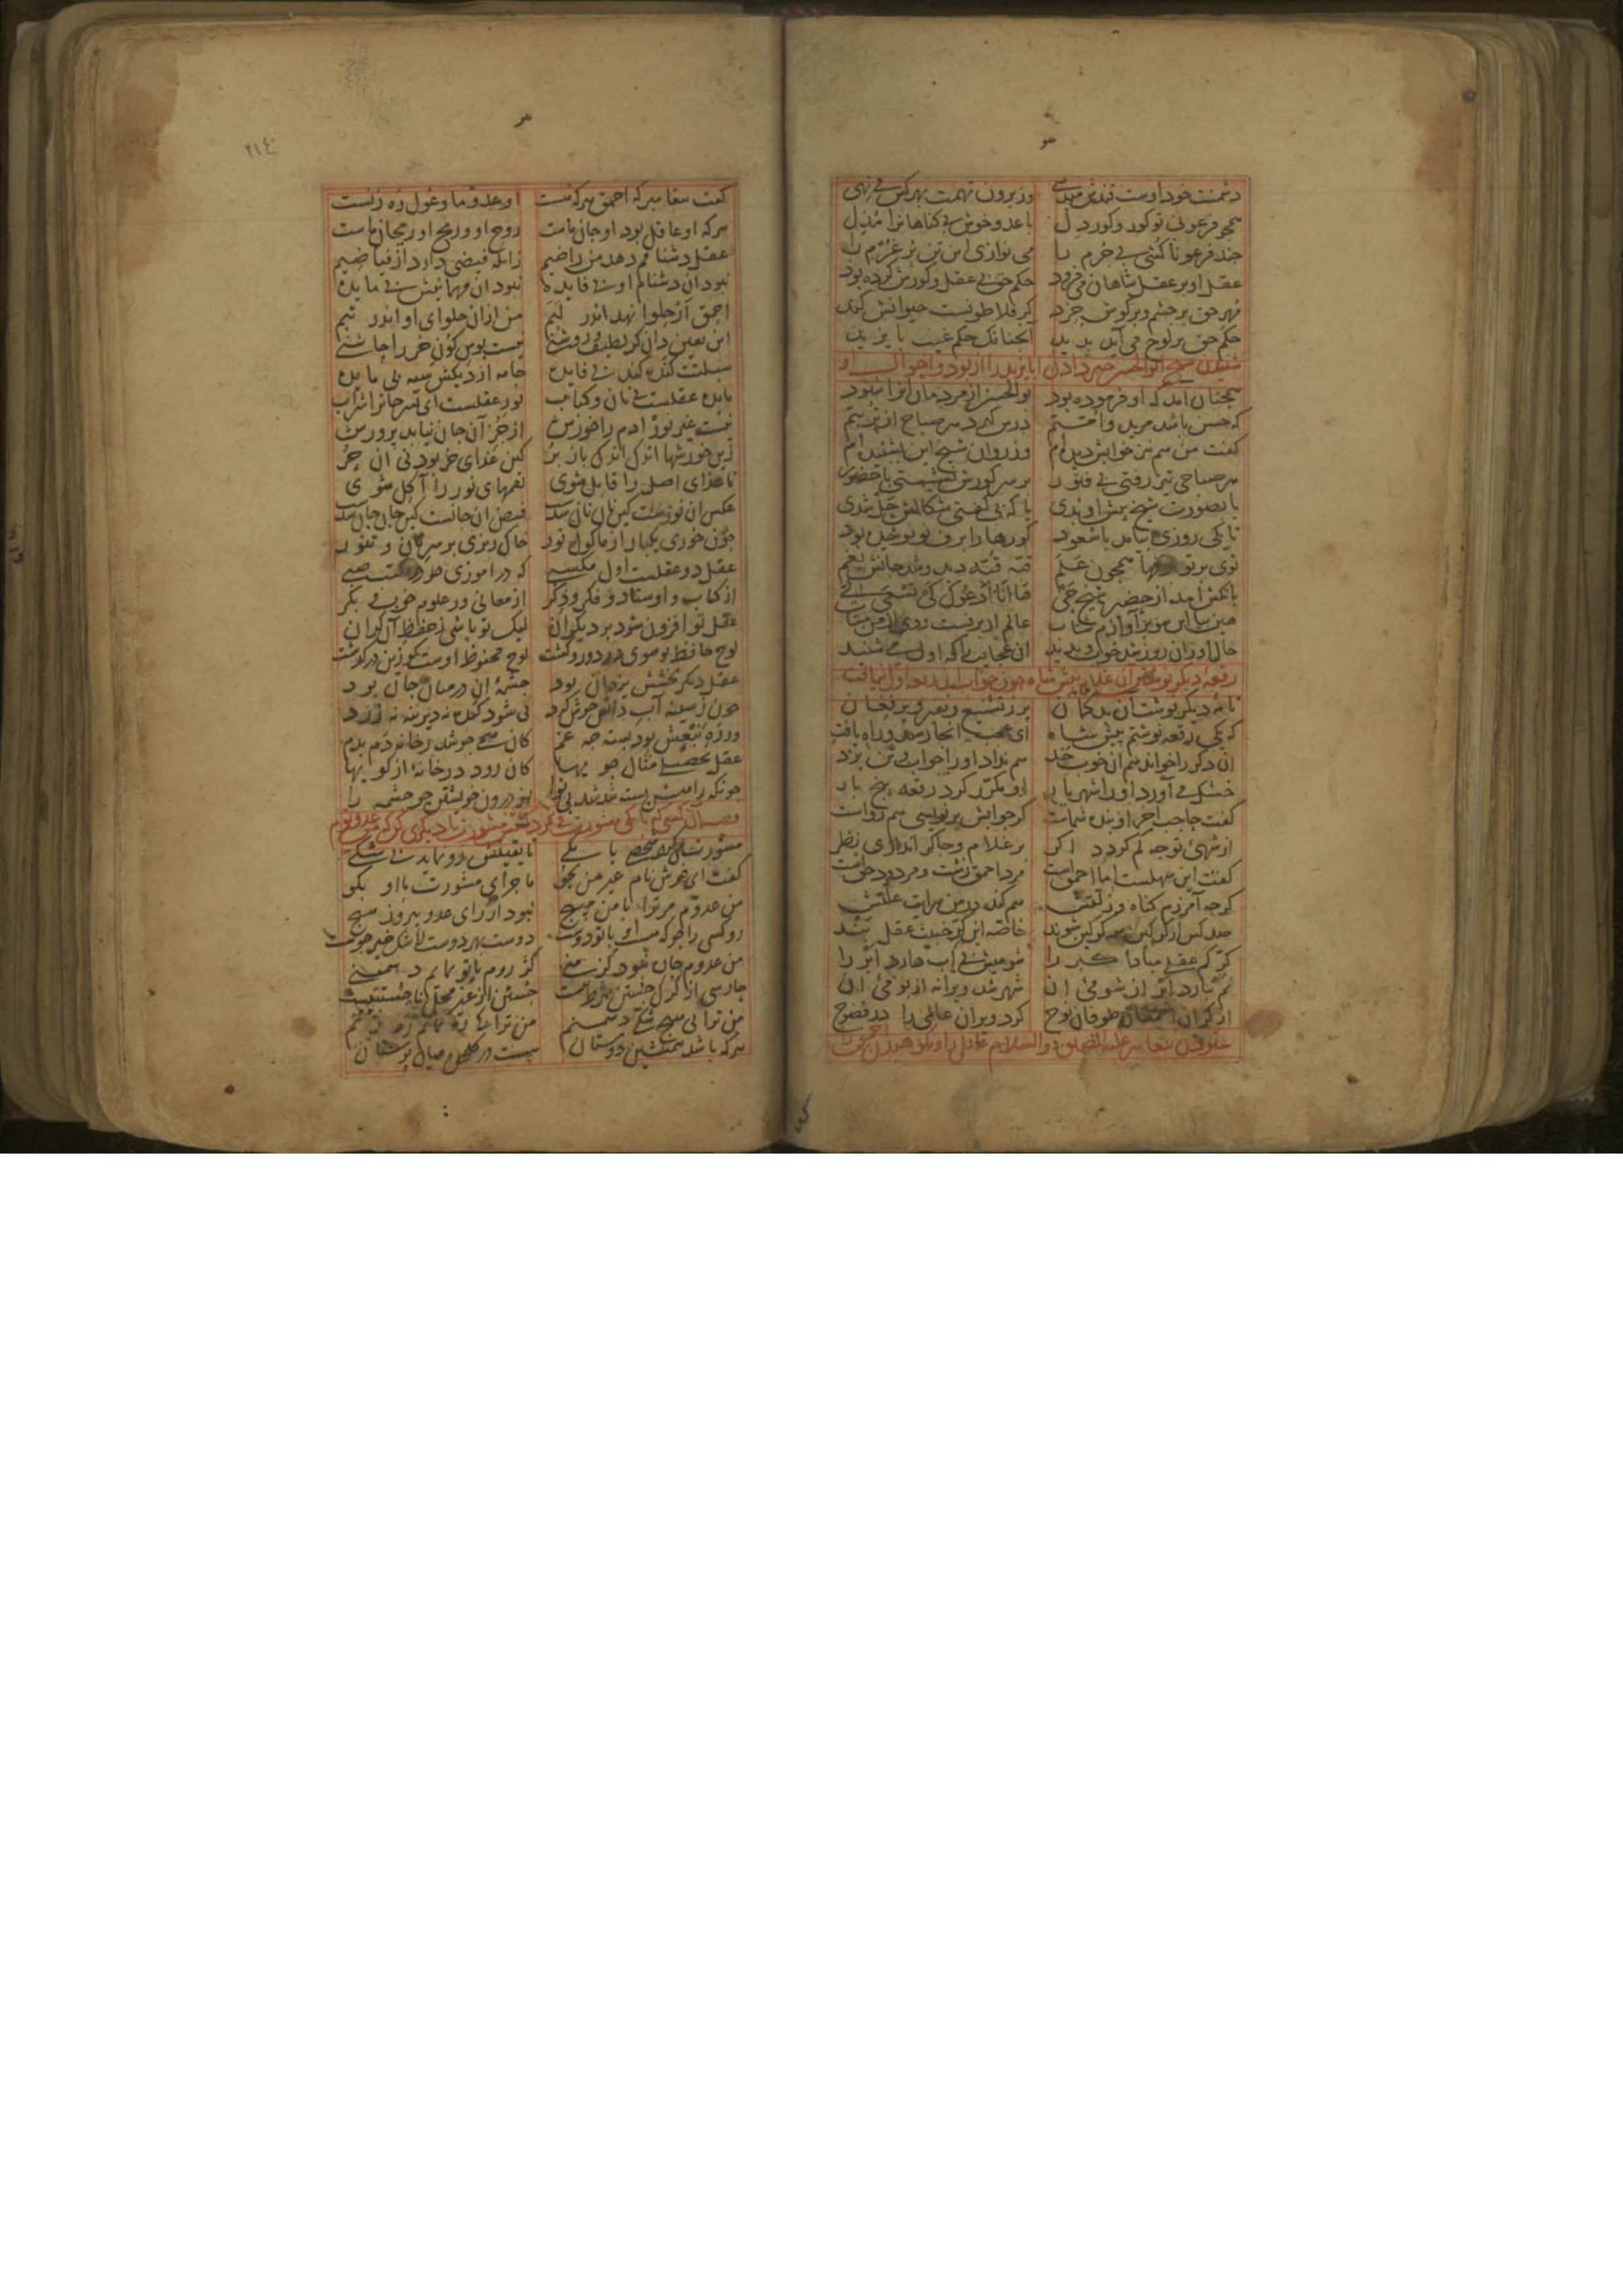 دشمنت خود اوست قندش میدهی وز برون تهمت بهر کس می نهی
همچو فرعونی تو کور و کوردل با عدو خوش بی کناهانرا مذل
چند فرعونا کشی بی جرم را می نوازی این تن پر غرم را
عقل او بر عقل شاهان می فزود حکم حق بی عقل و کورش کرده بود
مهر حق بر چشم و بر کوش خرد کر فلاطونست حیوانش کند
حکم حق بر لوح می آید بدید آنچنانک حکم غیب بایزید
شنیدن شیخ ابوالحسن خبر دادن ابایزید را از بود و احوال او
همچنان آمد که او فرموده بود بوالحسن از مردمان آنرا شنود
که حسن باشد مرید و امتم درس کیرد هر صباح از تربتم
کفت من هم نیز خوابش دیده ام وز روان شیخ این بشنیده ام
هر صباحی تیز رفتی بی فتور بر سر کورش نشستی با حضور
یا بصورت شیخ پیش او بدی یا که بی کفتی شکالش حل شدی
تا یکی روزی بیامد با سعود کورها را برف نو پوشیده بود
توی بر تو برفها همچون علم قبه قبه دید و شد جانش بغم
بانکش آمد از حضیره شیخ حی ها انا ادعوک کی تسعی الی
هین بیا این سو بر آوازم شتاب عالم ار برفست روی از من متاب
حال او زان روز شد خوب و بدید آن عجایب را که اول می شنید
رقعه دیکر نوشتن آن غلام پیش شاه چون جواب آن رقعه اول نیافت
نامه دیکر نوشت آن بدکمان پر ز تشنیع و نفیر و پر فغان
که یکی رقعه نوشتم پیش شاه ای عجب آنجا رسید و راه یافت
آن دکر را خواند هم آن خوب خد هم نداد او را جواب و تن بزد
خشک می آورد او را شهریار او مکرر کرد رقعه پنج بار
کفت حاجب آخر او بنده شماست کر جوابش بر نویسی هم رواست
از شهی تو چه کم کردد اکر بر غلام و چاکر اندازی نظر
کفت این سهلست اما احمق است مرد احمق زشت و مردود حق است
کرچه آمرزم کناه و زلتش هم کند در من سرایت علتش
صد کس از کرکین همه کرکین شوند خاصه این کر خبیث عقل بند
کر کم عقلی مبادا کبر را شومیش بی آب دارد ابر را
نم نبارد ابر از شومی آن شهر شد ویرانه از بومی آن
از کر آن احمقان طوفان نوح کرد ویران عالمی را در فضوح
ستودن پیغامبر علیه الصلوة والسلام عاقل را و نکوهیدن احمق را
۲۱٤
کفت پیغامبر که احمق هر که هست او عدو ما و غول ره زنست
هر که او عاقل بود او جان ماست روح او و ریح او ریحان ماست
عقل دشنامم دهد من راضیم زانکه فیضی دارد از فیاضیم
نبود آن دشنام او بی فایده نبود آن مهمانیش بی مایده
احمق ار حلوا نهد اندر لبم من از آن حلوای او اندر تبم
این یقین دان کر لطیف و روشنی نیست بوس کون خر را چاشنی
سبلتت کنده کند بی فایده جامه از دیکش سیه بی مایده
مایده عقلست نی نان و کباب نور عقلست ای پسر جانرا شراب
نیست غیر نور آدم را خورش از جز آن جان نیابد پرورش
زین خورشها اندک اندک باز بر کین غذای خر بود نی آن حر
تا غذای اصل را قابل شوی لقمهای نور را آکل شوی
عکس آن نورست کین نان نان شد فیض آن جانست کین جان جان شد
چون خوری یکبار از ماکول نور خاک ریزی بر سر نان و تنور
عقل دو عقلست اول مکسبی که در آموزی چو در مکتب صبی
از کتاب و اوستاد و فکر و ذکر از معانی و ز علوم خوب و بکر
عقل تو افزون شود بر دیکران لیک تو باشی ز حفظ آن کران
لوح حافظ تو شوی در دور و کشت لوح محفوظ اوست کو زین در کذشت
عقل دیکر بخشش یزدان بود چشمه آن در میان جان بود
چون ز سینه آب دانش جوش کرد نی شود کنده نه دیرینه نه زرد
ور ره نبعش بود بسته چه غم کان همی جوشد ز خانه دم بدم
عقل تحصیلی مثال جویها کان رود در خانه از کویها
چونکه راهش بسته شد شد بی نوا از درون خویشتن جو چشمه را
قصه آن کسی که با یکی مشورت می کرد کفتش مشورت با دیکری کن که من عدو توم
مشورت می کرد شخصی با یکی تا یقینش رو نماید بی شکی
کفت ای خوش نام غیر من بجو ماجرای مشورت با او بکو
من عدوم مر ترا با من مپیچ نبود از رای عدو پیروز هیچ
رو کسی را جو که هست او با تو دوست دوست بهر دوست لاشک خیر جوست
من عدوم چاره نبود کز منی کژ روم با تو نمایم دشمنی
حارسی از کرک جستن شرط نیست جستن از غیر محل ناجستنیست
من ترا بی هیچ شکی دشمنم من ترا کی ره نمایم ره زنم
هر که باشد همنشین دوستان هست در کلخن میان بوستان